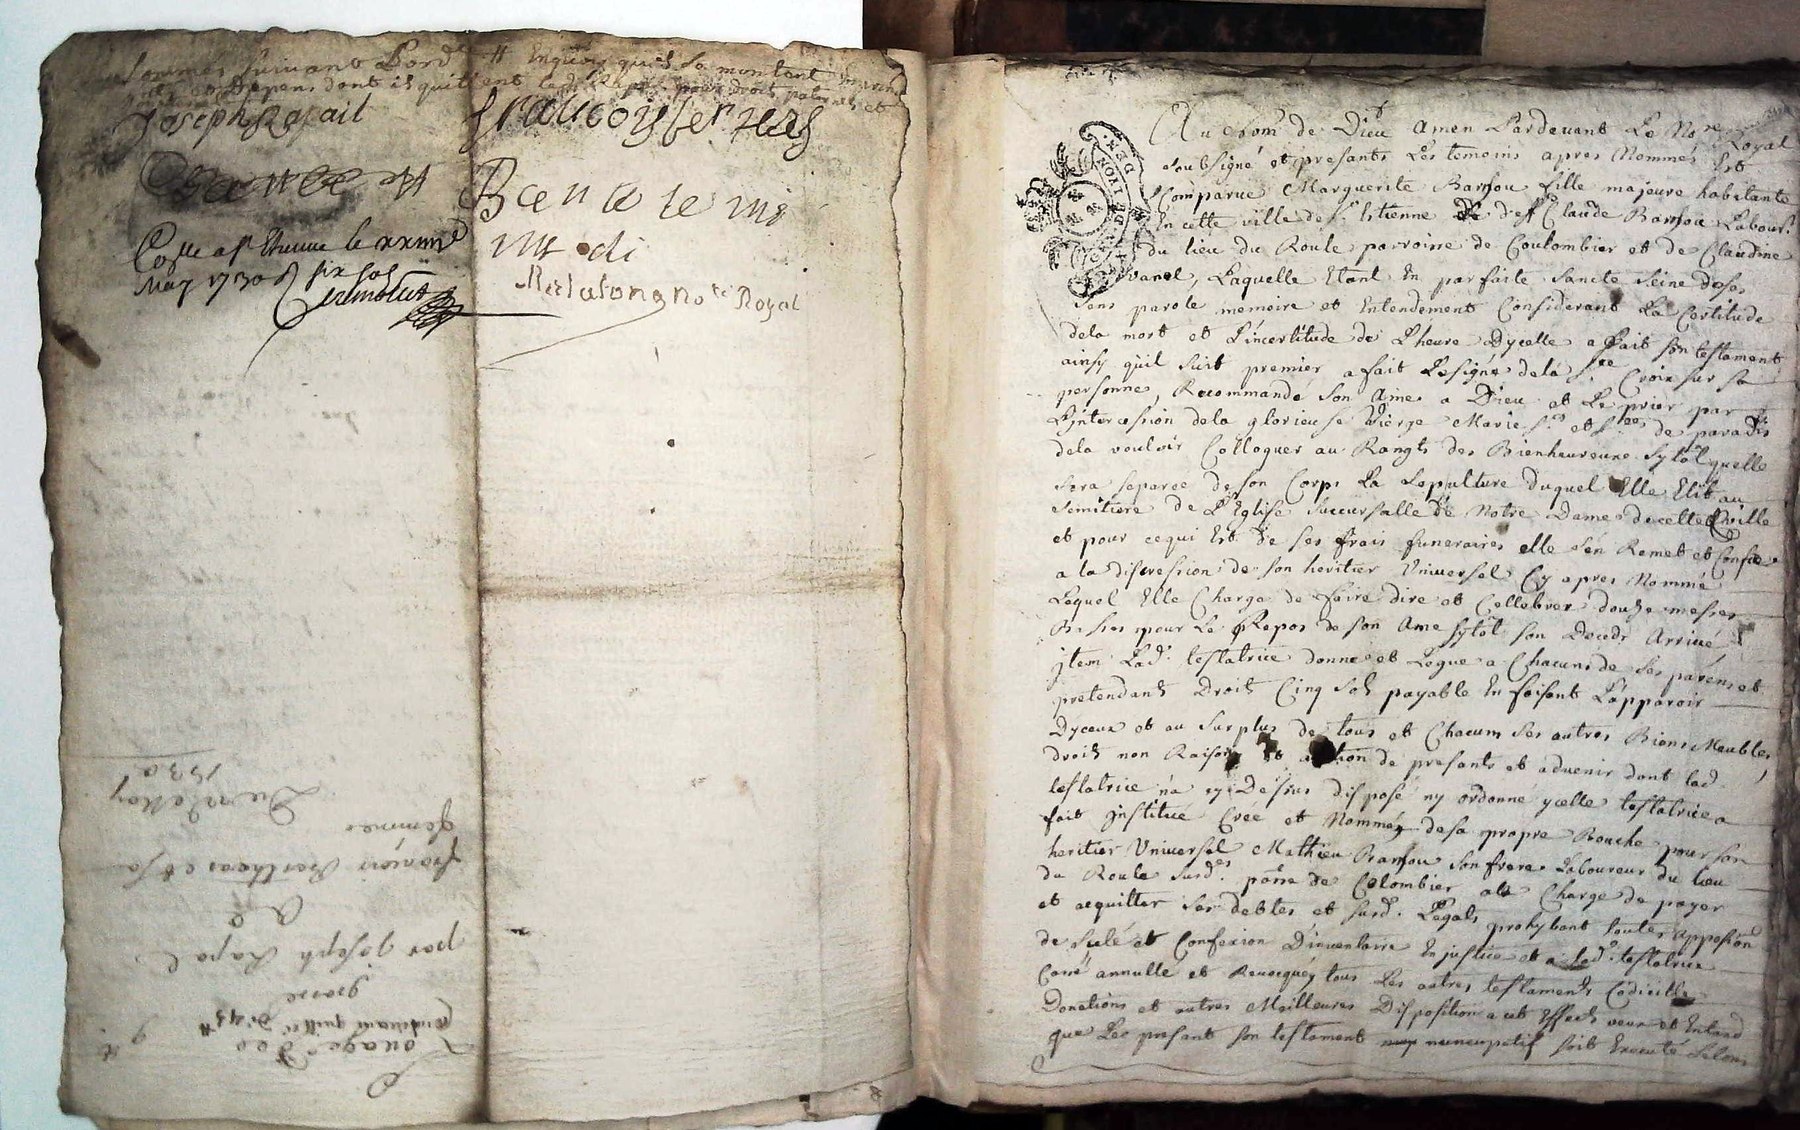 sommes suivant Bord. Enquoy quils se montent
depens dont ils quittent
Joseph Rapail
francois ber theas
Benoite mi
mo di
Coll a st Etienne le xxiiii
May 1730 R six sols
Merlasong no.re Royal
Du 22 May
1730
femme
françois Bertheas et sa
A
par Joseph Rapa
grosse
contenant quitt
Louage de
DE LYON
Au Nom de Dieu Amen Pardevant Le No.re Royal
soubsigné et presants Les temoins apres Nommés Est
Comparue Marguerite Barjou fille majeure habitante
En cette ville de s.t Etienne de deff Claude Barjou Labour.r
du lieu du Roule parroisse de Coulombier et de Claudine
vanel, Laquelle Etant En parfaite sancte seine deses
sens parole memoire et Entendement Considerant La Certitude
dela mort et L'incertitude de L'heure Dycelle a fait son testament
ainsy quil suit premier a fait Le signe dela s.te Croix sur sa
personne, Recommandé son Ame a Dieu et Le prier par
L'jntercession dela glorieuse Vierge Marie s.ts et s.tes de paradis
dela vouloir Colloquer au Rangts des Bienheureux sytôt quelle
sera separée deson Corps La sepulture duquel Elle Elit au
semitiere de L'Eglise succursalle de Notre Dame decette ville
et pour cequi Est de ses frais funeraires elle s'en Remet et Confie
a la discresion de son heritier Universel Cy apres Nommé
Lequel Elle Charge de faire dire et Cellebrer douze messes
Basses pour Le Repos de son Ame sytôt son Decedz Arrivé
jtem Lad. testatrice donne et Legue a Chacuns de ses parens et
pretendants Droit Cinq sols payable En faisant L'apparoir
Dyceux et au surplus de tous et Chacuns ses autres Biens Meubles,
droits non Raisons et action de presants et advenir dont lad.
testatrice n'a cy Dessus disposé ny ordonné ycelle testatrice a
fait jnstitué Créé et Nommé desa propre Bouche pour son
heritier Universel Mathieu Barjou son frere Laboureur du lieu
du Roule susd. parr.se de Colombier a la Charge de payer
et acquitter ses debtes et susd. Legats prohybant toutes apposi͠on
de sceléé et Confexion D'inventaire En justice et a Lad. testatrice
Cassé annullé et Revocqué tous Les autres testaments Codicille
Donations et autres Meilleures Disposition a cet Effect veux et Entend
que Le present son testament nuncupatif soit Executé selons